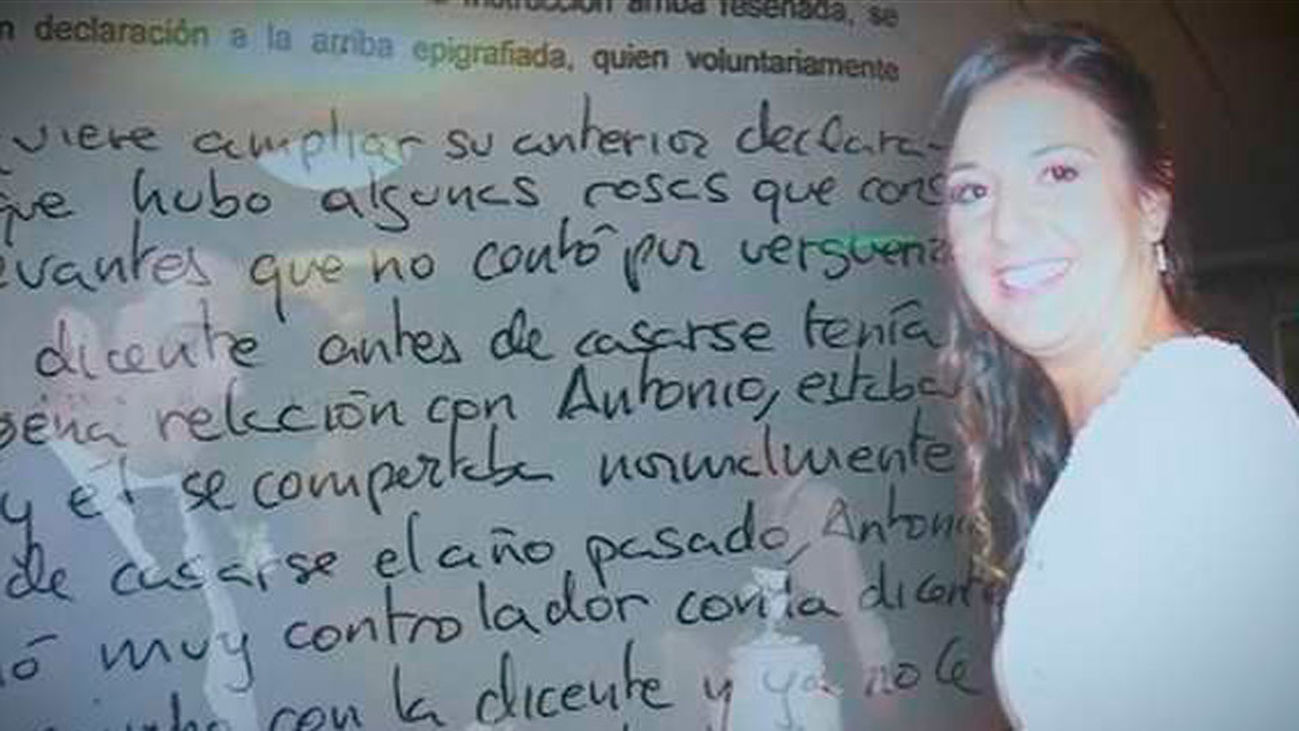 instrucción arriba reseñada, se
n declaración a la arriba epigrafiada, quien voluntariamente
uiere ampliar su anterior declara-
que hubo algunas cosas que cons
evantes que no contó por vergüenz
dicente antes de casarse tenía
relación con Antonio, estaba
y él se comportaba normalmente
de casarse el año pasado, Antoni
ó muy controlador con la dicente
con la dicente y ya no le